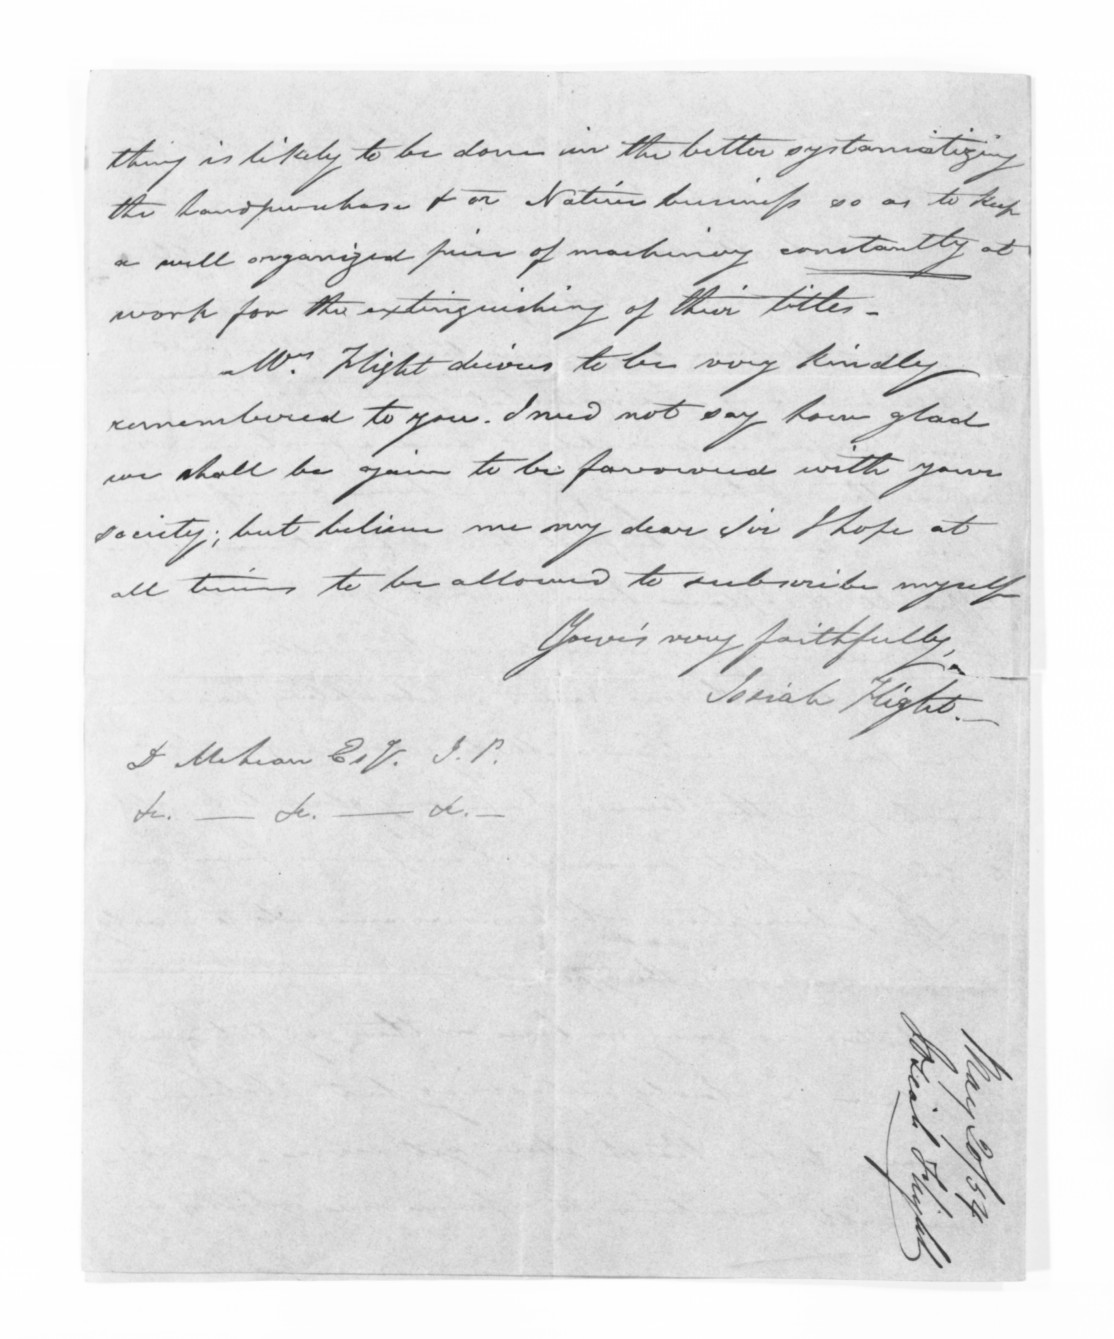 thing is likely to be done in the better systamiatizing
the landpurchase & or Native business so as to keep
a well organized piece of machinery constantly at
work for the extinguishing of their titles -
Mrs. Flight desires to be very kindly
remembered to you. I need not say how glad
we shall be again to be favoured with your
society; but believe me my dear Sir I hope at
all times to be allowed to subscribe myself
Your's very faithfully,
Josiah Flight. -
D McLean Esqr. J. P.
&c. — &c. — &c. -
May 20/54
Josiah Flight